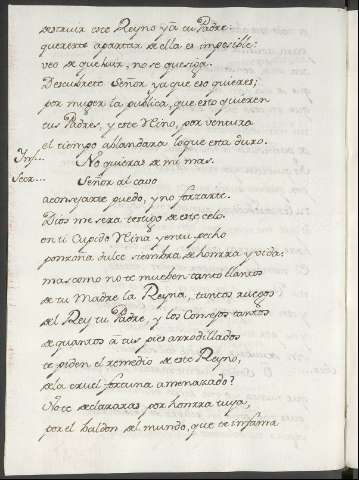 destruir este Reyno y a tu Padre:
quererte apartar de ella es imposible:
veo de que huir, no se que siga.
Descubrete Señor ya que eso quieres;
por muger la publica, que esto quieren
tus Padres, y este Nino, por ventura
el tiempo ablandara lo que esta duro.
Inf... No quieras de mi mas.
Secr... Señor al cavo
aconsejarte puedo, y no forzarte.
Dios me sera testigo de este celo.
en ti Cupido Nina y en tu pecho
ponzoña dulce siembra de honrra y vida:
mas como no te mueben tanto llantos
de tu Madre la Reyna, tantos ruegos
del Rey tu Padre, y los Consejos tantos
de quantos a tus pies arrodillados
te piden el remedio de este Reyno,
de la cruel fortuna amenazado?
No te declararas por honrra tuya,
por el baldon del mundo, que te infama